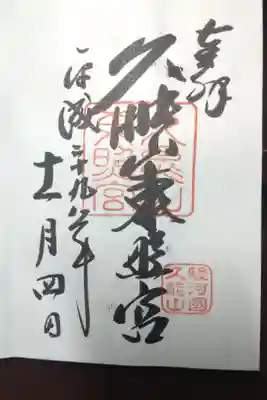 奉拝
久能山東照宮
平成二十九年
十一月四日
駿河國
久能山